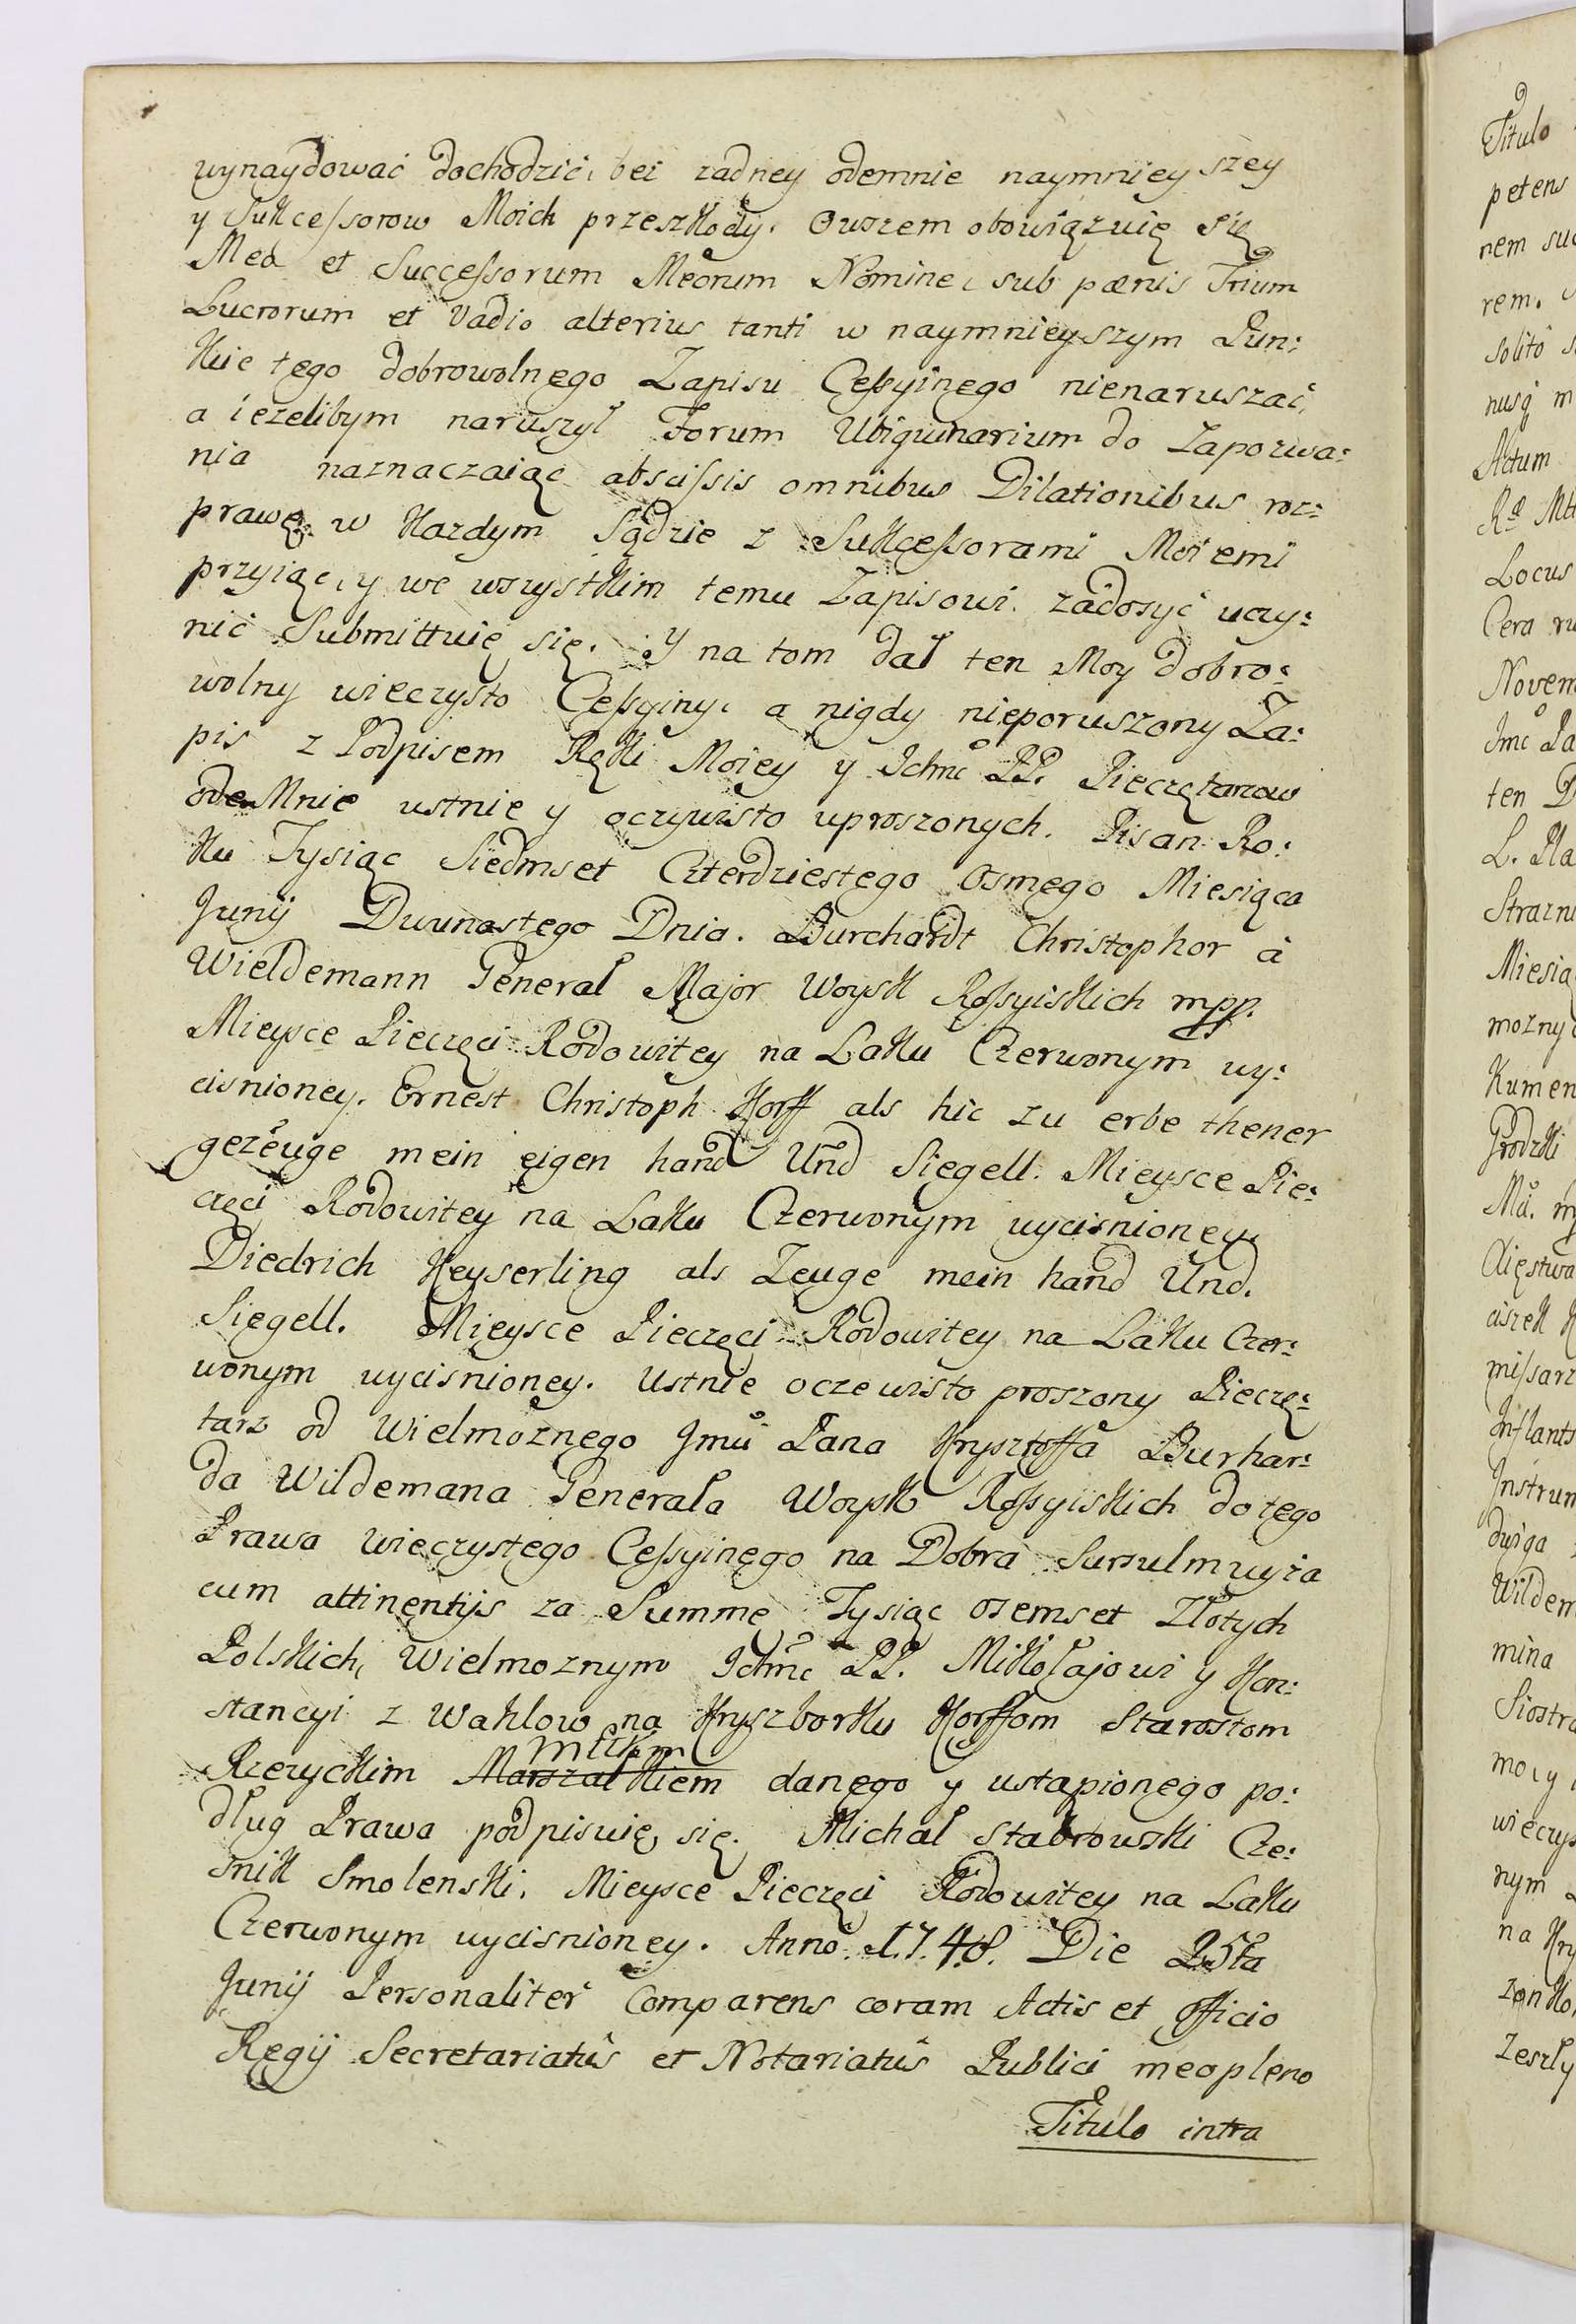 wynaydować dochodzić, bez zadney odemnie naymnieyszey
y Sukcessorow Moich przeszkody. Owszem obowiązuię się
Mea et Successorum Meorum Nomine, sub pœnis Trium
Lucrorum et Vadio alterius tanti w naymnieyszym Pun:
kcie tego dobrowolnego Zapisu Cessyinego nienaruszać,
a iezelibym naruszył Forum Ubiquinarium do Zapozwa:
nia naznaczaiąc abscissis omnibus Dilationibus roz:
prawę w kazdym Sądzie z Sukcessorami Moiemi
przyiąć, y we wszystkim temu Zapisowi zadosyć uczy:
nić Submittuię się. Y na tom dał ten Moy dobro:
wolny wieczysto Cessyiny, a nigdy nieporuszony Za:
pis z Podpisem Ręki Moiey y Ichmć PP. Pieczętarzow
odeMnie ustnie y oczywisto uproszonych. Pisan Ro:
ku Tysiąc Siedmset Czterdziestego Osmego Miesiąca
Junij Dwunastego Dnia. Burchardt Christophor à
Wieldemann Generał Major Woysk Rossyiskich mpp.
Mieysce Pieczęci Rodowitey na Laku Czerwonym wy:
cisnioney. Ernest Christoph Korff als hic zu erbe thener
gezeuge mein eigen hand Und Siegell. Mieysce Pie:
częci Rodowitey na Laku Czerwonym wycisnioney.
Diedrich Keyserling als Zeuge mein hand Und.
Siegell. Mieysce Pieczęci Rodowitey na Laku Czer:
wonym wycisnioney. Ustnie oczewisto proszony Pieczę:
tarz od Wielmoznego Jmci Pana Krysztoffa Burhar:
da Wildemana Generała Woysk Rossyiskich do tego
Prawa Wieczystego Cessyinego na Dobra Sursulmuyza
cum attinentijs za Summę Tysiąc osemset Złotych
Polskich, Wielmoznym Ichmć PP. Mikołajowi y Kon:
stancyi z Wahlow na Kryszborku Korffom Starostom
Rzezyckim Marszałkiem danego y ustąpionego po:
dług Prawa podpisuię się. Michał Stabrowski Cze:
snik Smolenski. Mieysce Pieczęci Rodowitey na Laku
Czerwonym wycisnioney. Anno 1748. Die 25ta
Junij Personaliter Comparens coram Actis et Officio
Regij Secretariatûs et Notariatûs Publici meo pleno
Titulo intra
Titulo
petens
nem suc
rem.
Solito s
nusq m
Actum
Locus
Cera ru
Novem
Jmć Pa
ten D
L. Pla
Strazni
Miesią
mozny
Kumen
Grodzki
ciszek K
missarz
Inflants
Instrum
dwiga
Wildem
mina
Siostra
mo, y
wieczys
nym
na Kry
zeszły